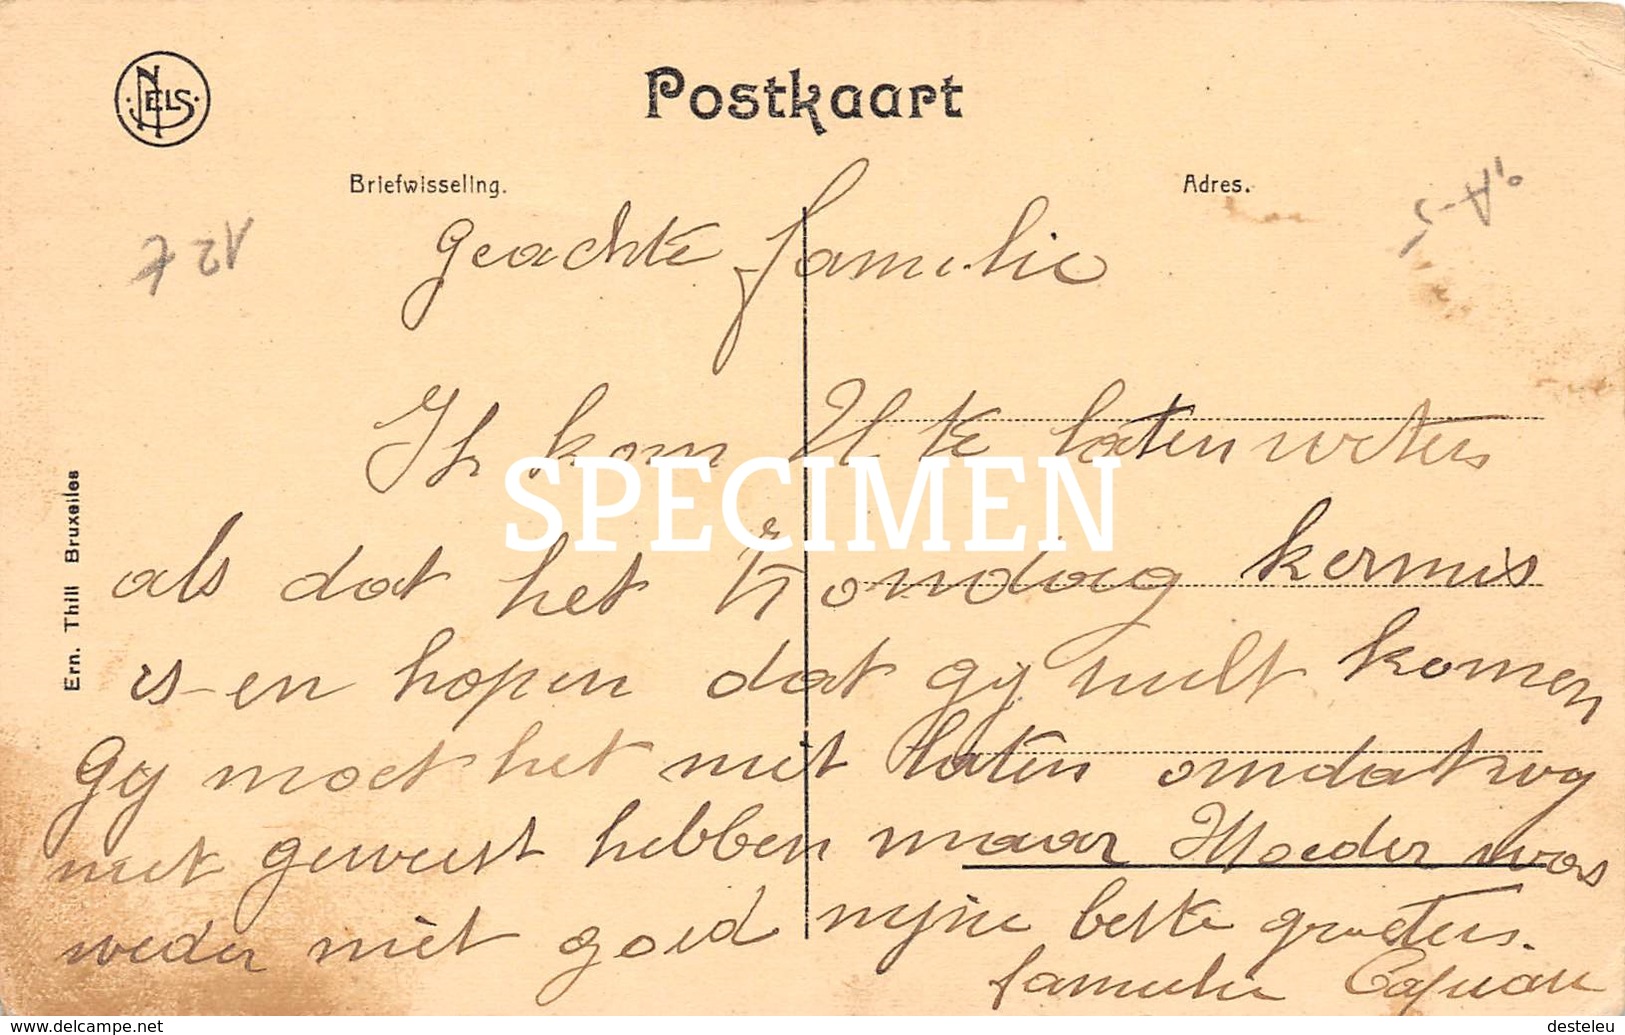 NELS
Postkaart
Briefwisseling.
Adres.
12 €
Geachte familie
Ik kom U te laten weten
SPECIMEN
als dat het Zondag kermis
is en hopen dat gij zult komen
Gij moet het niet laten omdat wij
niet geweest hebben maar Moeder was
weder niet goed mijne beste groeten.
familie
Ern. Thill Bruxelles
www.delcampe.net
desteleu